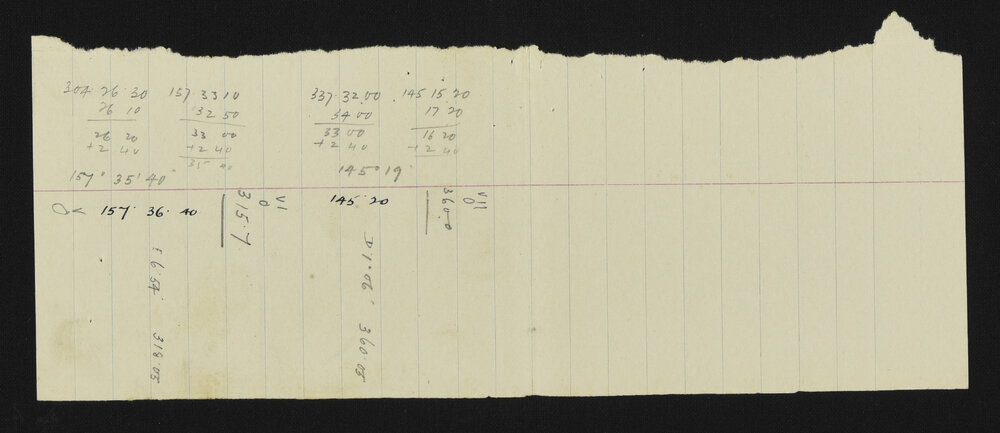 304 26 30 157 33 10 337 32 00 145 15 20
26 10 32 50 34 00 17 20
26 20 33 00 33 00 16 20
+2 40 +2 40 +2 40 +2 40
157° 35' 40" 35 40 145° 19'
157. 36. 40 145. 20
VI
0
315.7
VII
0
360.0
E 6.54' 318.05
D 1° 06' 360.05